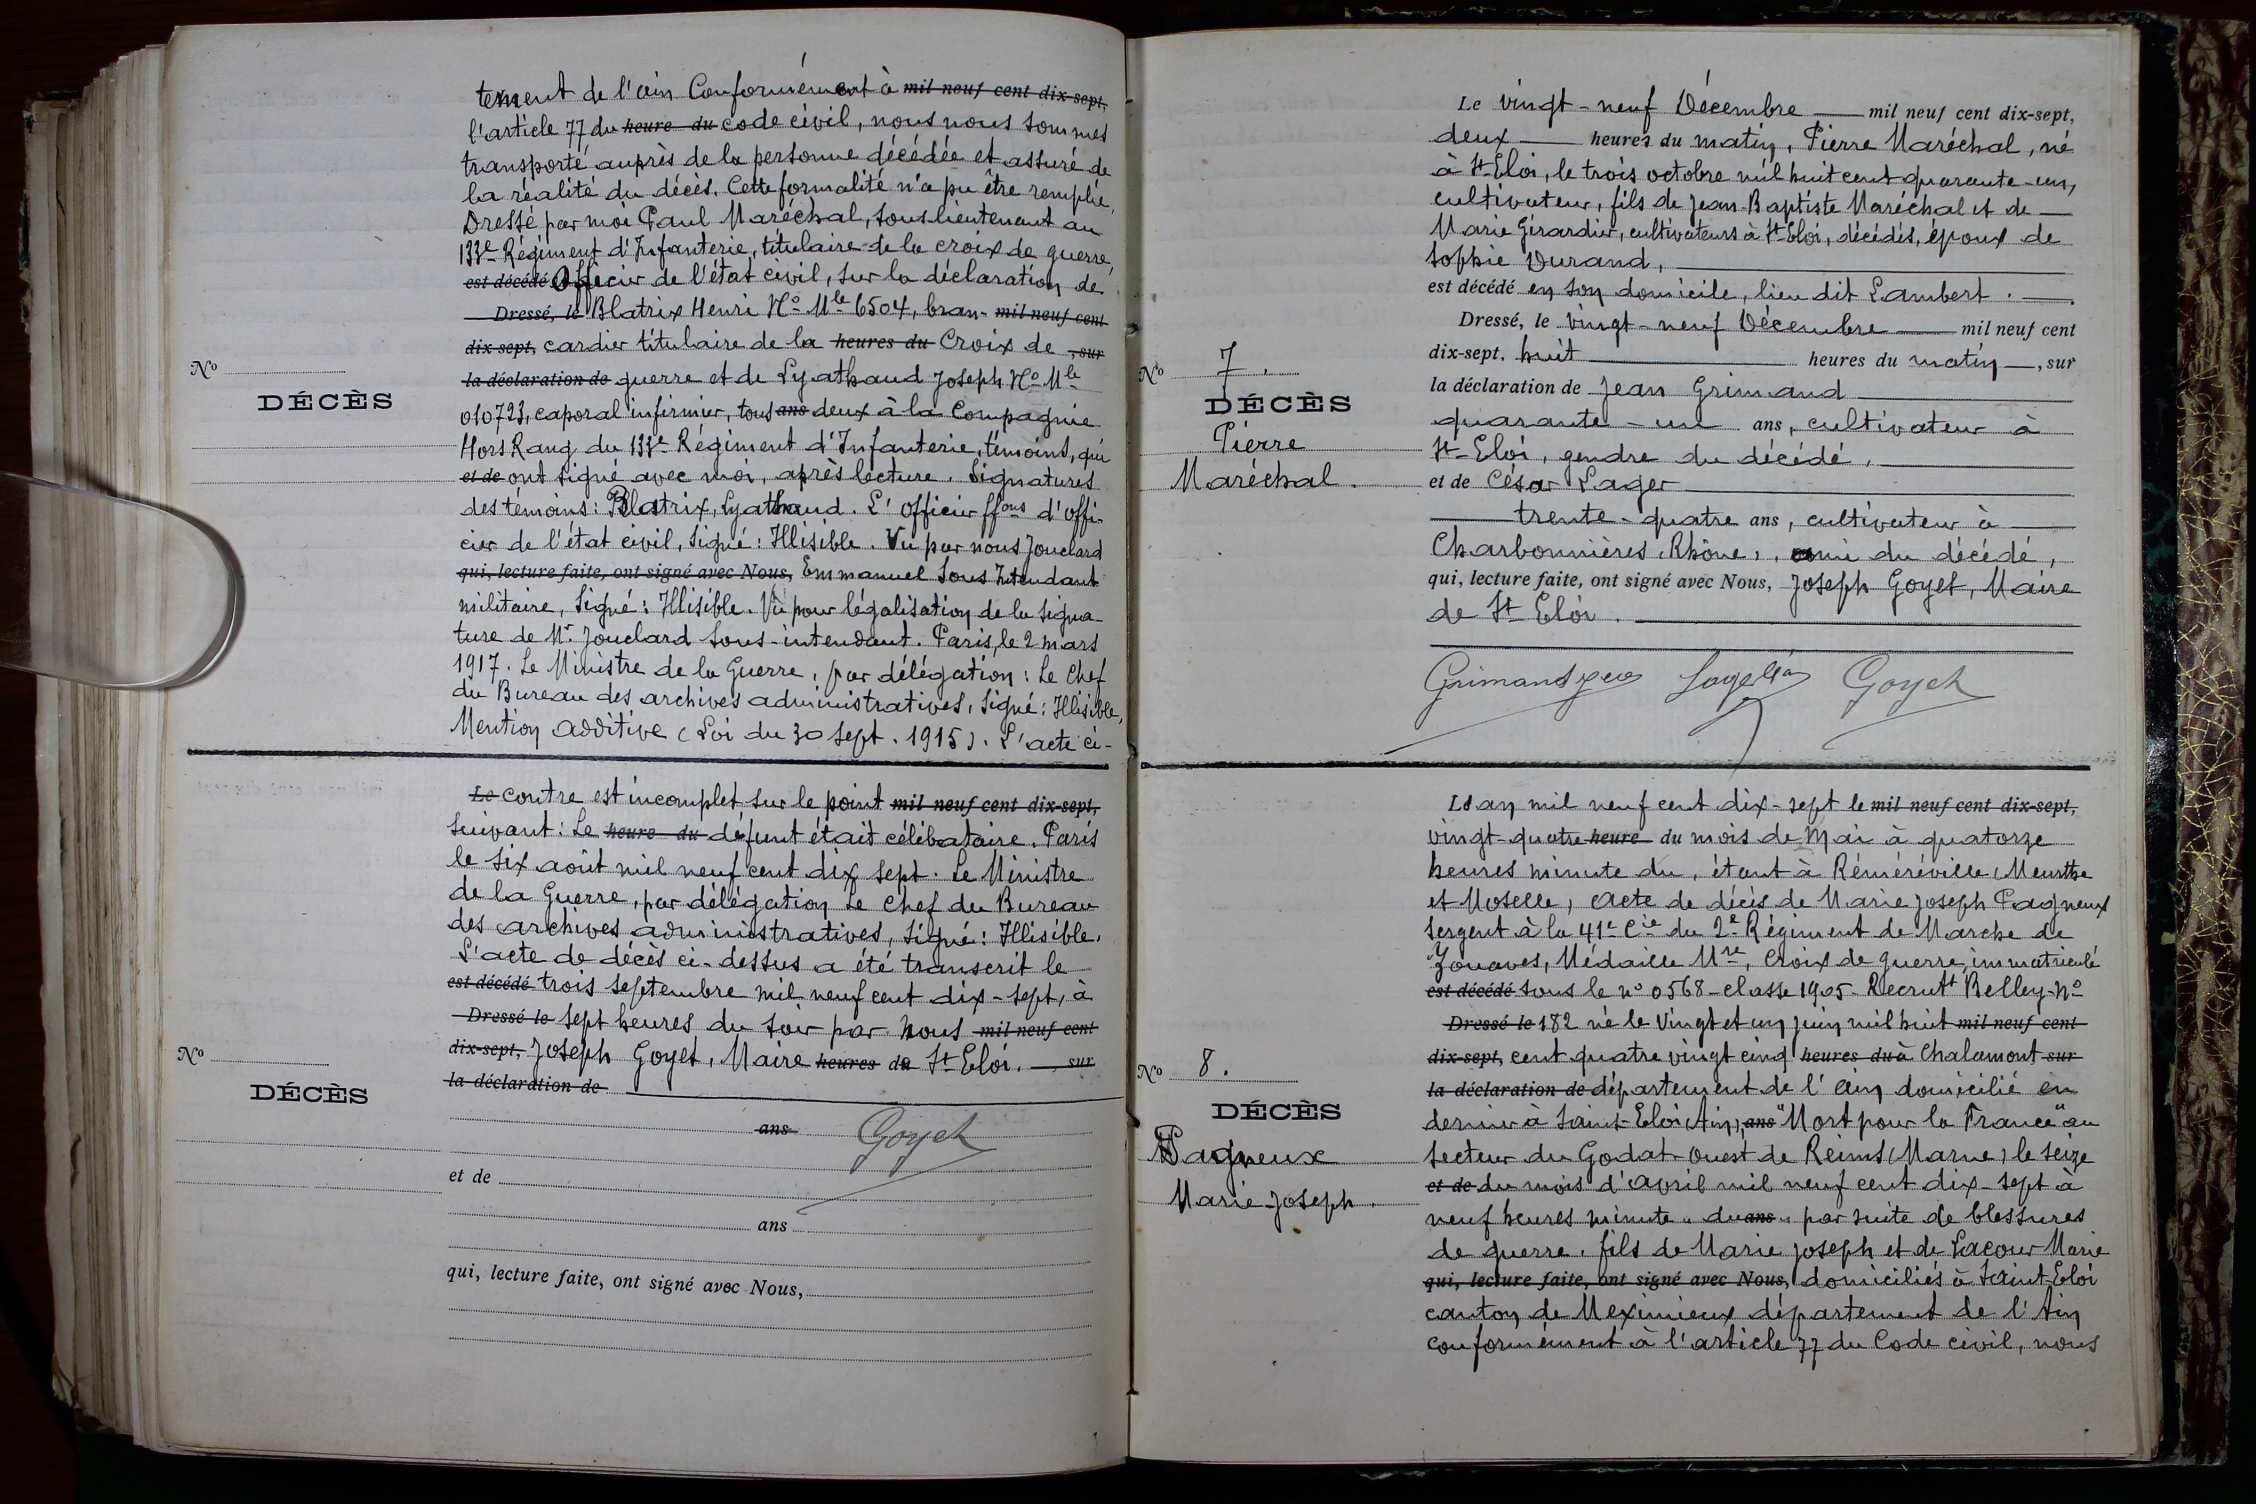 tement de l'ain Conformément à mil neuf cent dix-sept,
l'article 77 du heure du code civil, nous nous sommes
transporté auprès de la personne décédée et assuré de
la réalité du décès. Cette formalité n'a pu être remplie,
Dressé par moi Paul Maréchal, sous-lieutenant au
133e Régiment d'Infanterie, titulaire de la croix de guerre,
est décédé Officier de l'état civil, sur la déclaration de
Dressé, le Blatrix Henri No Mle 6504, bran- mil neuf cent
dix-sept, cardier titulaire de la heures du Croix de , sur
la déclaration de guerre et de Lyathaud Joseph No Mle
No
DÉCÈS
010723, caporal infirmier, tous ans deux à la Compagnie
Hors Rang du 133e Régiment d'Infanterie, témoins, qui
et de ont signé avec moi, après lecture. Signatures
des témoins: Blatrix, Lyathaud. L'officier ffons d'offi-
cier de l'état civil, signé: Illisible. Vu par nous Jouclard
qui, lecture faite, ont signé avec Nous, Emmanuel Sous Intendant
militaire, signé: Illisible. Vu pour légalisation de la signa-
ture de Mr. Jouclard sous-intendant. Paris, le 2 mars
1917. Le Ministre de la Guerre, par délégation: Le Chef
du Bureau des archives administratives, signé: Illisible,
Mention additive (Loi du 30 sept. 1915). L'acte ci-
Le contre est incomplet sur le point mil neuf cent dix-sept,
suivant: Le heure du défunt était célibataire. Paris
le six août mil neuf cent dix sept. Le Ministre
de la Guerre, par délégation Le Chef du Bureau
des archives administratives, signé: Illisible.
L'acte de décès ci-dessus a été transcrit le
est décédé trois septembre mil neuf cent dix-sept, à
Dressé le sept heures du soir par nous mil neuf cent
dix-sept, Joseph Goyet, Maire heures de St Eloi. , sur
la déclaration de
No
DÉCÈS
ans
Goyet
et de
ans
qui, lecture faite, ont signé avec Nous,
Le vingt-neuf Décembre mil neuf cent dix-sept,
deux heures du matin, Pierre Maréchal, né
à St-Eloi, le trois octobre mil huit cent quarante-un,
cultivateur, fils de Jean-Baptiste Maréchal et de
Marie Girardier, cultivateurs à St-Eloi, décédés, époux de
Sophie Durand,
est décédé en son domicile, lieu dit Lambert.
Dressé, le vingt-neuf Décembre mil neuf cent
dix-sept, huit heures du matin, sur
la déclaration de Jean Grimaud
No 7.
DÉCÈS
Pierre
Maréchal.
quarante-un ans, cultivateur à
St-Eloi, gendre du décédé,
et de César Lager
trente-quatre ans, cultivateur à
Charbonnières (Rhône), ami du décédé,
qui, lecture faite, ont signé avec Nous, Joseph Goyet, Maire
de St Eloi.
Goyet
L'an mil neuf cent dix-sept le mil neuf cent dix-sept,
vingt-quatre heure du mois de Mai à quatorze
heures minute du, étant à Réméréville (Meurthe
et Moselle) acte de décès de Marie Joseph Pagneux
sergent à la 41e Cie du 2e Régiment de Marche de
Zouaves, Médaille Mre, Croix de guerre, immatriculé
est décédé sous le no 0568-classe 1905-Recrutt Belley-No
Dressé le 182 né le Vingt et un juin mil huit mil neuf cent
dix-sept, cent quatre vingt cinq heures du à Chalamont sur
la déclaration de département de l'ain domicilié en
No 8.
DÉCÈS
Pagneux
Marie-Joseph.
dernier à Saint-Eloi (Ain), ans "Mort pour la France" au
secteur du Godat-Ouest de Reims (Marne) le seize
et de du mois d'avril mil neuf cent dix-sept à
neuf heures minute " du ans " par suite de blessures
de guerre. fils de Marie Joseph et de Lacour Marie
qui, lecture faite, ont signé avec Nous, domiciliés à Saint-Eloi
canton de Meximieux département de l'Ain
conformément à l'article 77 du Code civil, nous